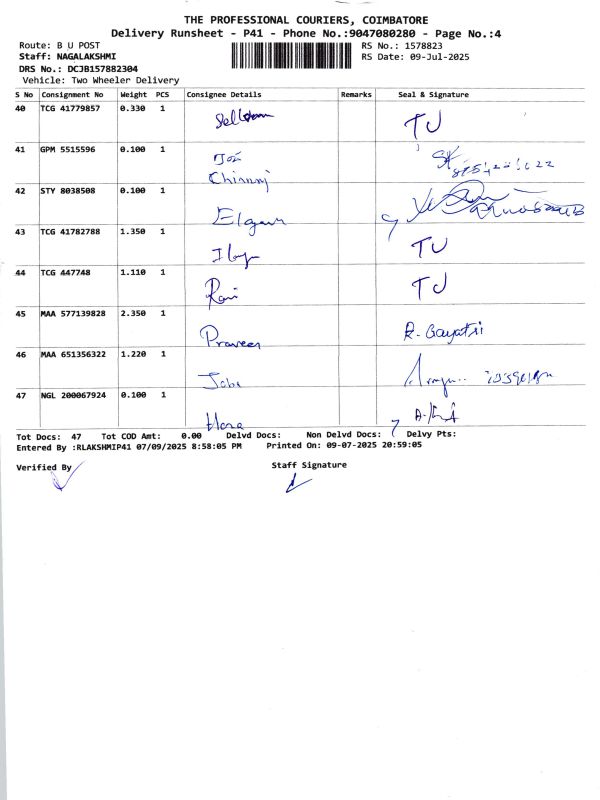 THE PROFESSIONAL COURIERS, COIMBATORE
Delivery Runsheet - P41 - Phone No.:9047080280 - Page No.:4
Route: B U POST
RS No.: 1578823
Staff: NAGALAKSHMI
RS Date: 09-Jul-2025
DRS No.: DCJB157882304
Vehicle: Two Wheeler Delivery
S No Consignment No Weight PCS Consignee Details Remarks Seal & Signature
40 TCG 41779857 0.330 1
TJ
41 GPM 5515596 0.100 1
42 STY 8038508 0.100 1
43 TCG 41782788 1.350 1
TJ
44 TCG 447748 1.110 1
Ravi TJ
45 MAA 577139828 2.350 1
Praveen R. Gayatri
46 MAA 651356322 1.220 1
47 NGL 200067924 0.100 1
Tot Docs: 47 Tot COD Amt: 0.00 Delvd Docs: Non Delvd Docs: Delvy Pts:
Entered By :RLAKSHMIP41 07/09/2025 8:58:05 PM Printed On: 09-07-2025 20:59:05
Verified By
Staff Signature